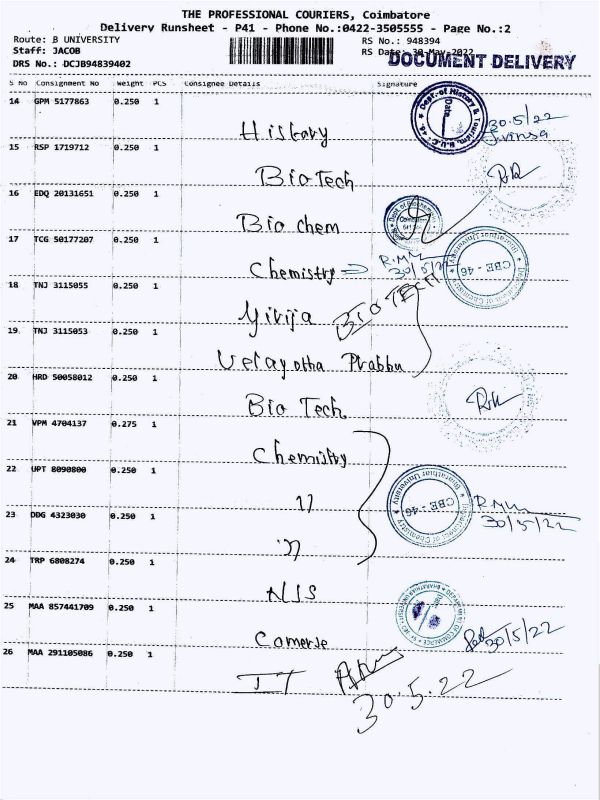 THE PROFESSIONAL COURIERS, Coimbatore
Delivery Runsheet - P41 - Phone No.:0422-3505555 - Page No.:2
Route: B UNIVERSITY
RS No.: 948394
Staff: JACOB
RS Date: 30-May-2022
DRS No.: DCJB94839402
DOCUMENT DELIVERY
S No Consignment No Weight PCS Consignee Details Signature
14 GPM 5177863 0.250 1
History
30.5/22
15 RSP 1719712 0.250 1
BioTech
16 EDQ 20131651 0.250 1
Bio chem
17 TCG 50177207 0.250 1
Chemistry
30/5/22
CBE - 46
18 TNJ 3115055 0.250 1
BIOTECH
19 TNJ 3115053 0.250 1
Prabhu
20 HRD 50058012 0.250 1
Bio Tech
21 VPM 4704137 0.275 1
Chemistry
22 UPT 8090800 0.250 1
11
CBE - 46
23 DDG 4323030 0.250 1
11
30/5/22
24 TRP 6808274 0.250 1
NIS
25 MAA 857441709 0.250 1
Comerse
30/5/22
26 MAA 291105086 0.250 1
IT
30.5.22